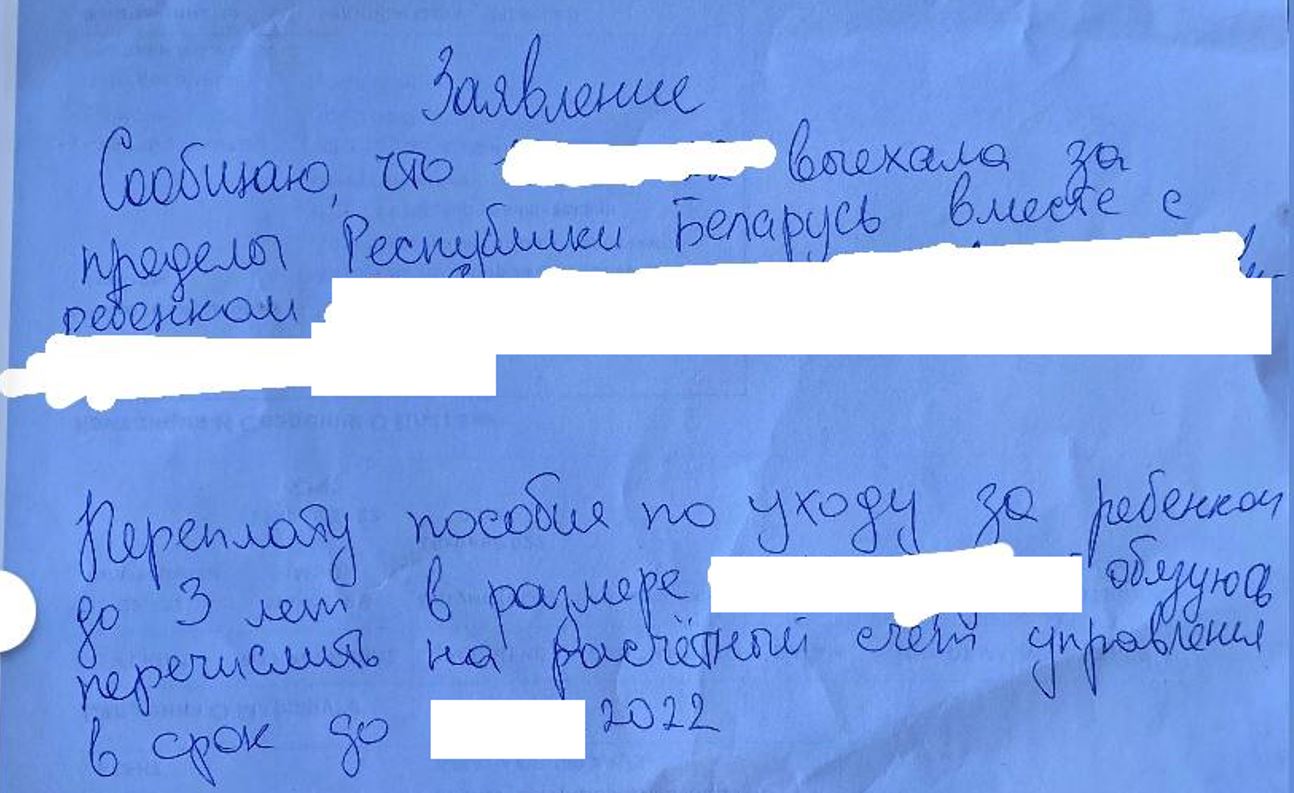 Заявление
Сообщаю, что выехала за
пределы Республики Беларусь вместе с
ребенком
Переплату пособия по уходу за ребенком
до 3 лет в размере обязуюсь
перечислить на расчётный счёт управления
в срок до 2022